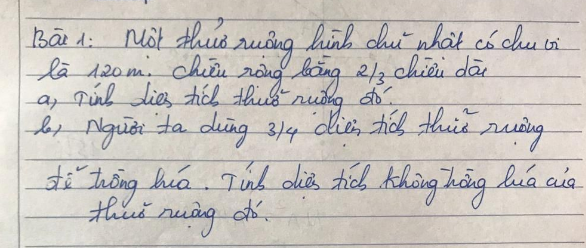 Bài 1: Một thửa ruộng hình chữ nhật có chu vi
là 120m. chiều rộng bằng 2/3 chiều dài
a, Tính diện tích thửa ruộng đó.
b, Người ta dùng 3/4 diện tích thửa ruộng
để trồng lúa. Tính diện tích không trồng lúa của
thửa ruộng đó.